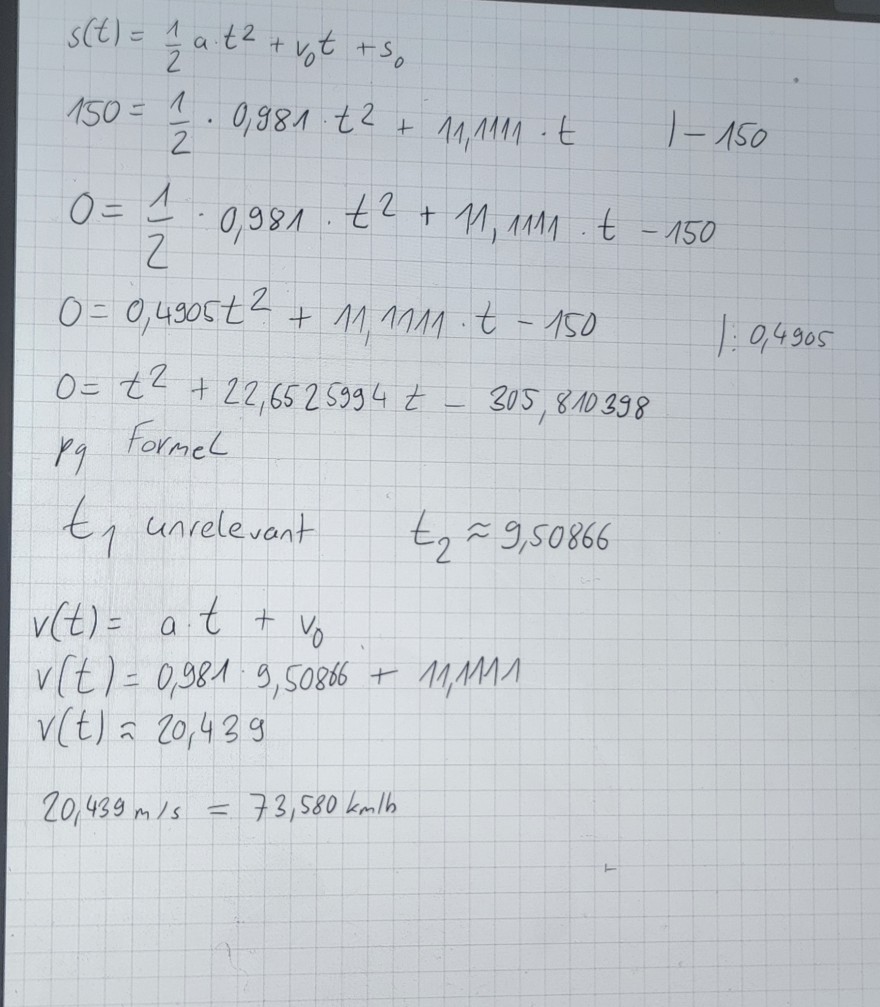 s(t) = 1/2 a · t² + v₀t + s₀
150 = 1/2 · 0,981 · t² + 11,1111 · t |- 150
0 = 1/2 · 0,981 · t² + 11,1111 · t - 150
0 = 0,4905t² + 11,1111 · t - 150 |: 0,4905
0 = t² + 22,6525994 t - 305,810398
pq Formel
t₁ unrelevant t₂ ≈ 9,50866
v(t) = a · t + v₀
v(t) = 0,981 · 9,50866 + 11,1111
v(t) ≈ 20,439
20,439 m/s = 73,580 km/h